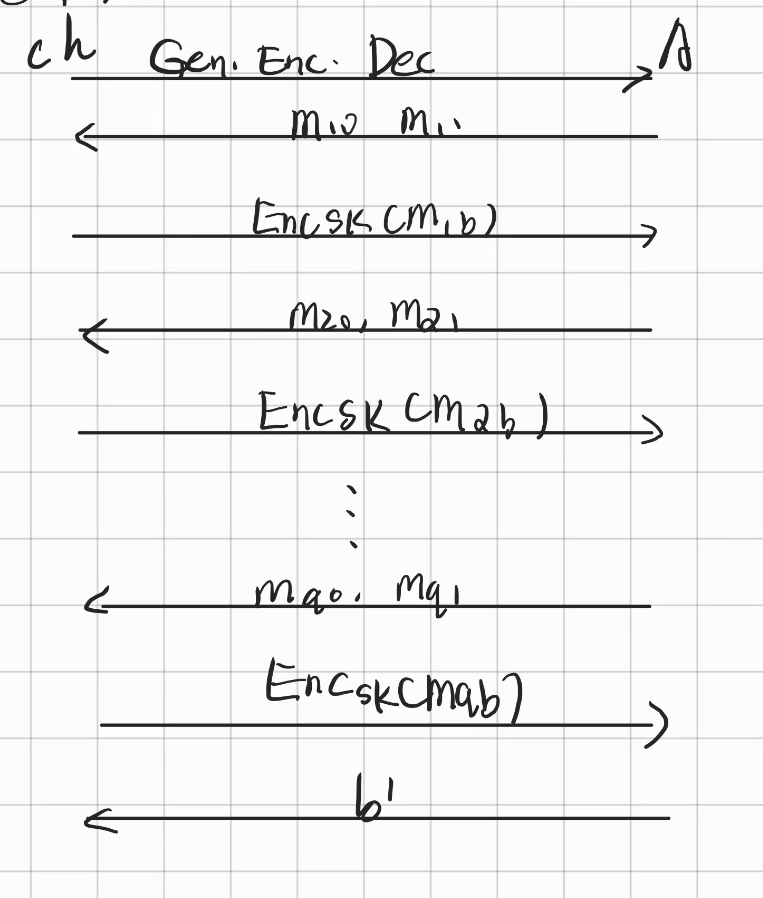 ch Gen. Enc. Dec A
m10 m11
EncSK(m1b)
m20, m21
EncSK(m2b)
⋮
mq0. mq1
EncSK(mqb)
b'